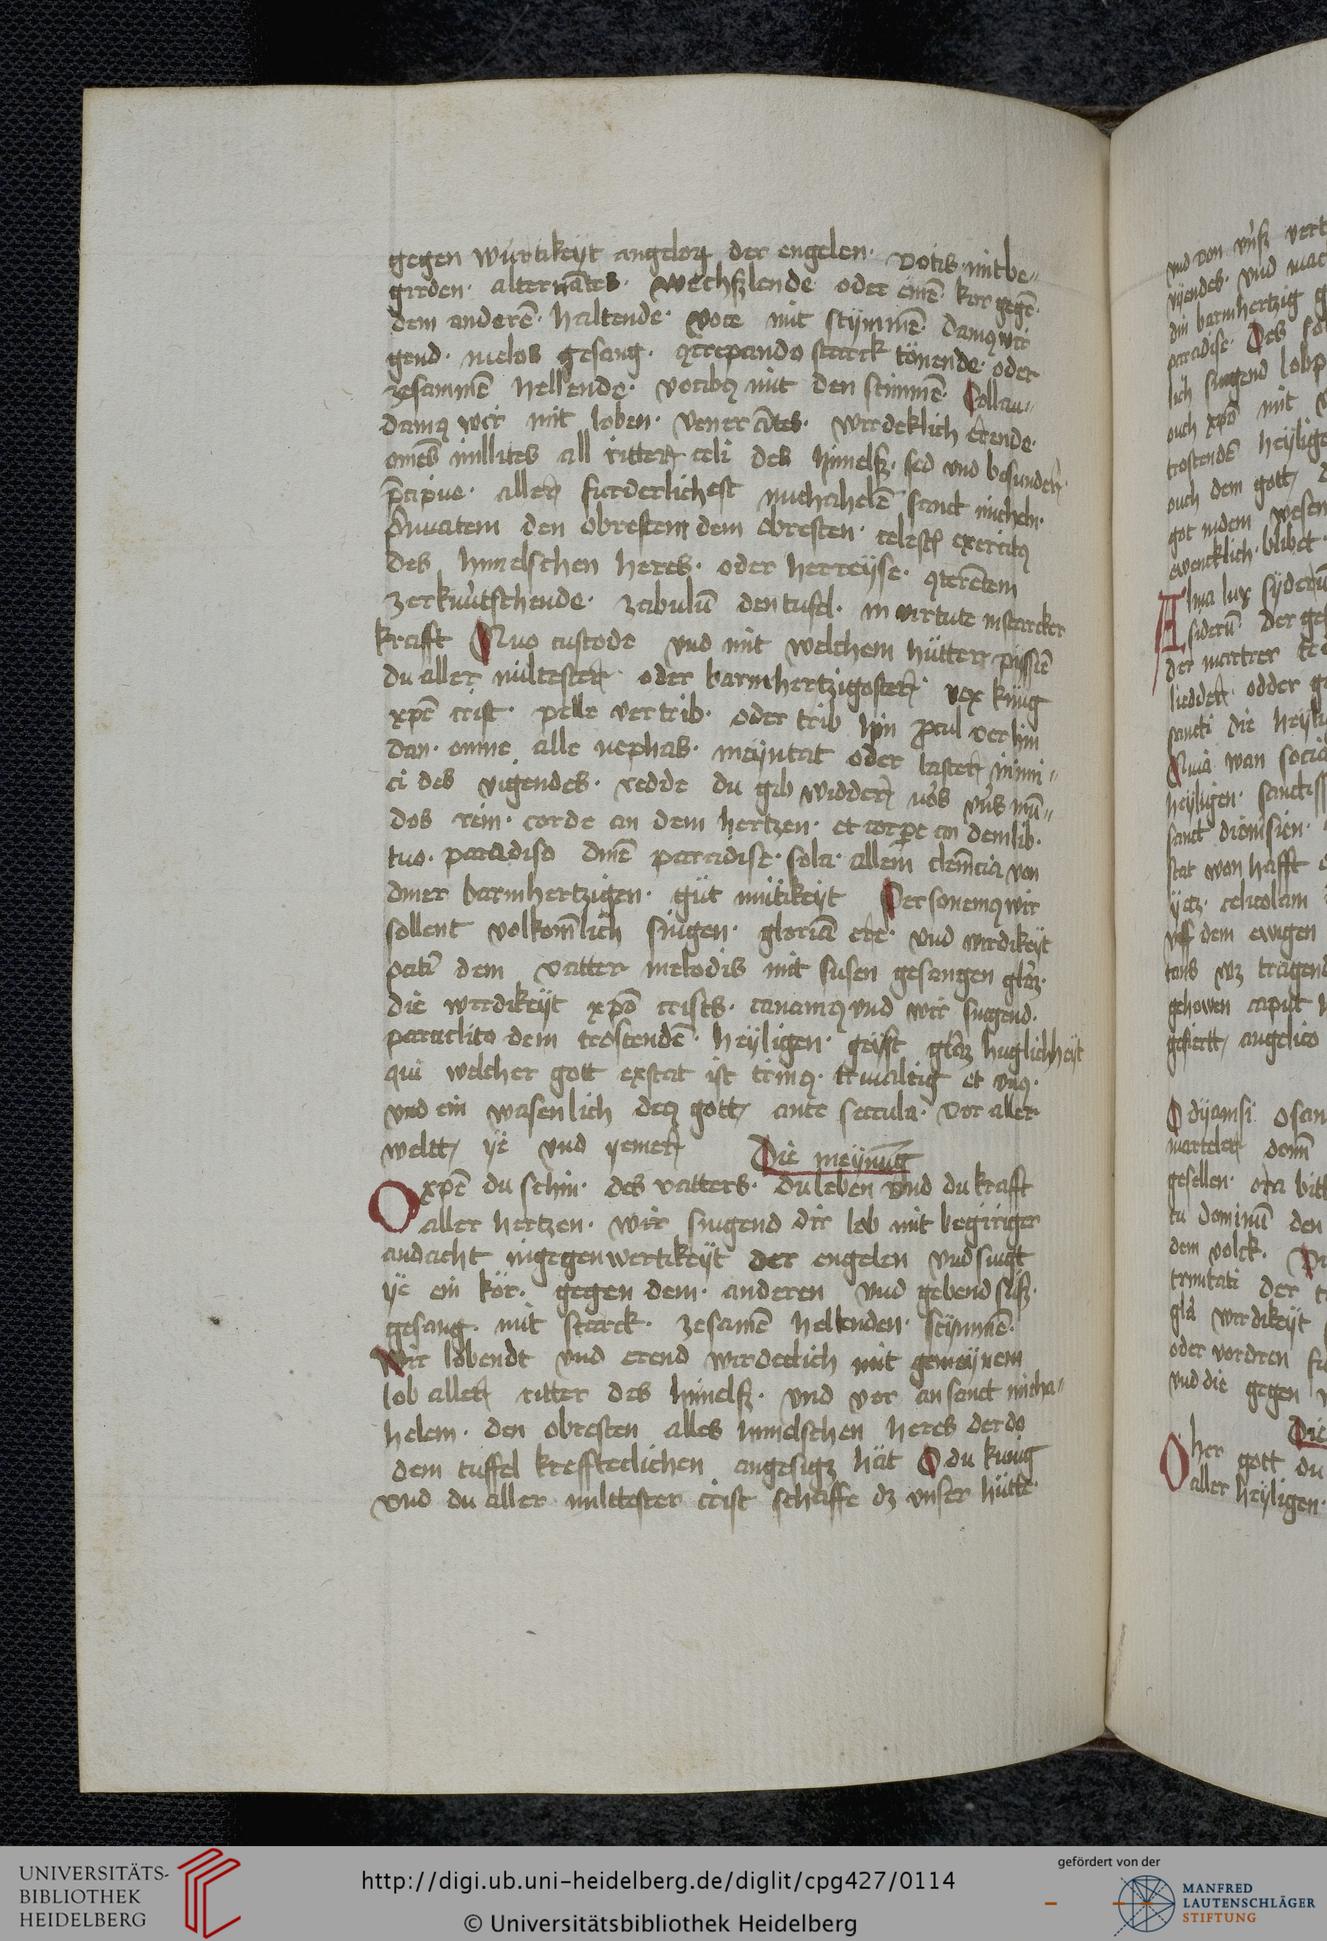 gegen wurtikeyt angeloꝝ der engelen· votis· mit be„
girden· alternātes· wechßlende oder einē· kor gegē·
dem anderē· haltende· voce mit stymmē· damꝯ wir
gend· melos gesang· ꝯcrepando starck tönende· oder
zesammē hellende· vocibꝯ mit den stimmē· Collau„
damꝯ wir mit loben· venerātes· wirdeklich erende·
omēs millites all ritter celi des himelß· sed vnd besunder
p̄cipue· aller furderlichest michahelē sanct micheln·
den obresten dem obresten· celestis exercitꝯ
des himelschen heres· oder herreyse· ꝯterētem
zerknu̇tschende· zabulū den tufel· in virtute in starcker
krafft Quo custode vnd mit welchem hütter pijssīe
du aller miltester oder barmhertzigoster· rex küng
xp̄e crist· pelle vertrib· oder trib hin pcul verhin
dan· omne alle nephas· meyntat oder laster inimi„
ci des vigendes· redde du gib widder nos vns mū„
dos rein· corde an dem hertzen· et corpe an dem lib·
tuo· paradiso dinē paradise· sola· allein clemēcia von
diner barmhertzigen· güt mitikeyt Personemꝯ wir
sollent volkom̄lich singen· gloriā ere· vnd wirdikeyt
patri dem vatter melodis mit susen gesangen glīaz·
die wirdikeyt xpō crists· canamꝯ vnd wir singend·
paraclito dem trostendē· heyligen· geyst glīaz huglichheyt
qui welcher gott exstat ist trinꝯ· trivaltig et vnꝯ·
vnd ein wasenlich deꝯ gott ante secula· vor aller
weltt ye vnd yemer Die meynūg
O xpē du schin· des vatters· du leben vnd du krafft
aller hertzen· wir singend dir lob mit begiriger
andacht ingegenwertikeyt der engelen vnd singt
ye ein kör· gegen dem· anderen vnd gebend süß·
gesang· mit starck· zesamē hellenden· stymmē·
Wir lobendt vnd erend wirdeclich mit gemeynem
lob aller ritter des himelß· vnd vor an sanct micha„
helem· den obresten alles himelschen heres der do
dem tuffel krefftteclichen angesigz hät O du kunig
vnd du aller milttester crist schaffe dz vnser hütte·
vnd von vnß vert
vyendes· vnd mac
din barmhertzig
paradise· Des
lich singend lob
ouch xpō mit
trostendē heylige
ouch dem gott
got in dem wesen
ewencklich· blibet·
Alma lux syderū
siderū der ge
der martrer
liedder· odder
sancti die heyl
Quia wan
heyligen· sanct
sanct dionisien·
stat wonhafft
yetz· celicolam
vff dem ewigen
tans wz tragend
gehowen caput
gefiertt angelico
O dyonisi
marteler
gesellen· ora bit
tu dominū den
dem volck·
trinitati der
glā wirdikeyt
oder vordren
vnd die gegen
Die
Oher gott du
aller heyligen·
UNIVERSITÄTS-
BIBLIOTHEK
HEIDELBERG
http://digi.ub.uni-heidelberg.de/diglit/cpg427/0114
© Universitätsbibliothek Heidelberg
gefördert von der
MANFRED
LAUTENSCHLÄGER
STIFTUNG